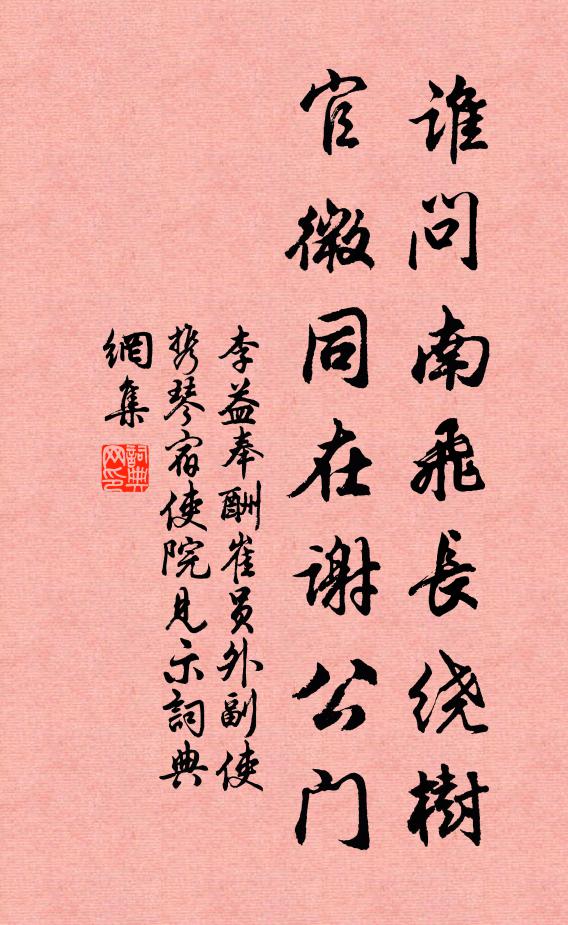 谁问南飛長绕樹
官微同在谢公门
李益奉酬崔員外副使
携琴宿使院見示詞典
網集
詞典
网印